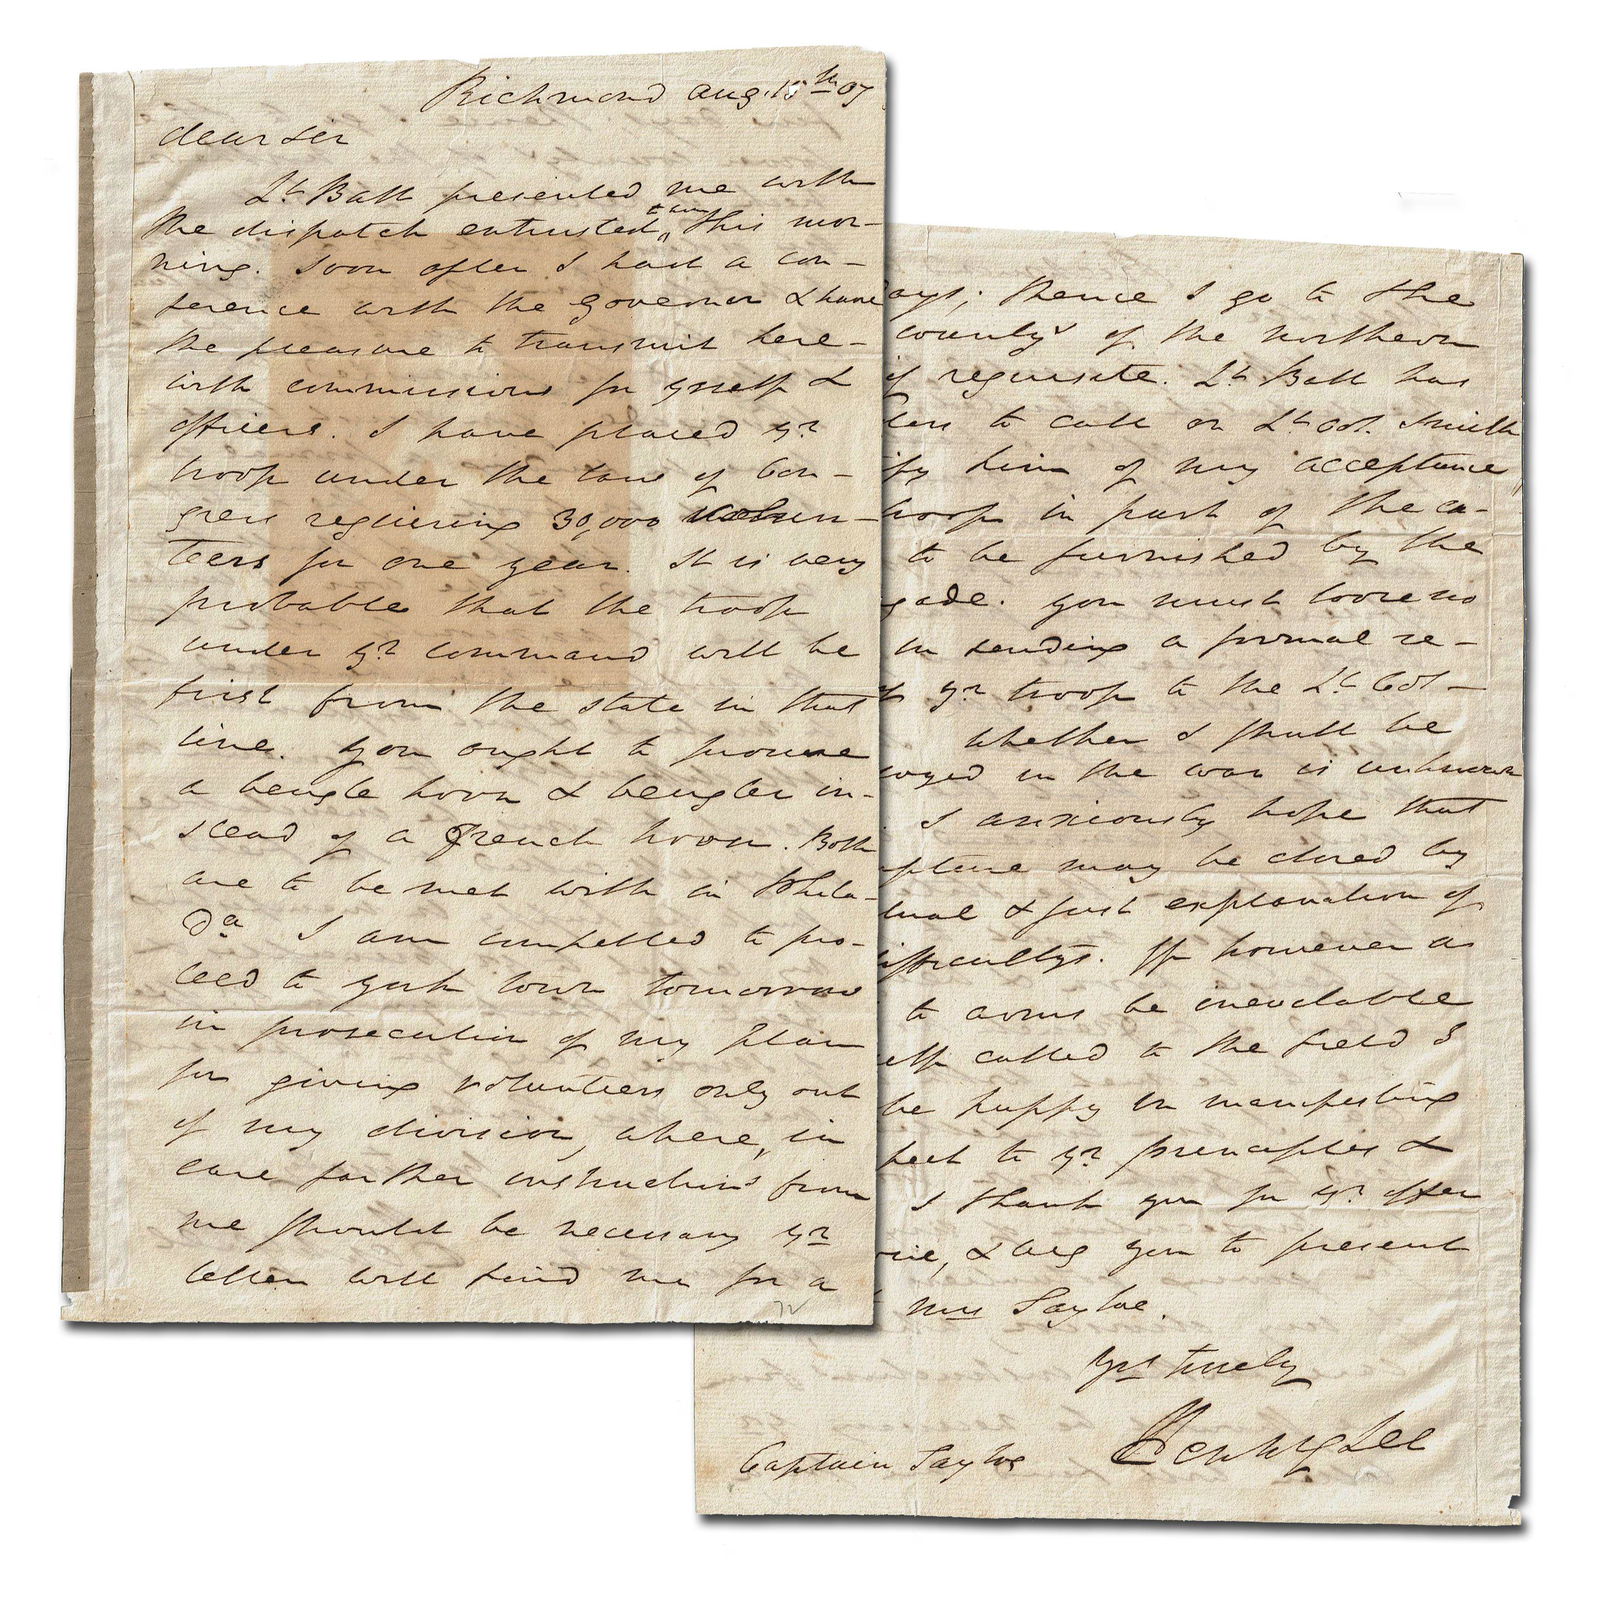 Richmond Aug. 15th 07
dear sir
Lt Ball presented me with
the dispatch entrusted to him this mor-
ning. Soon after I had a con-
ference with the Governor & have
the pleasure to transmit here-
with commissions for yrself &
officers. I have placed yr
troop under the law of Con-
gress requiering 30,000 volun-
teers for one year. It is very
probable that the troop
under yr command will be
first from the state in that
line. You ought to procure
a beugle horn & beugler in-
stead of a French horn. Both
are to be met with in Phila-
da I am compelled to pro-
ceed to york town tomorrow
in prosecution of my plan
for giving volunteers only out
of my division, where, in
case farther instructions from
me should be necessary yr
letter will find me for a
ays; thence I go to the
county's of the northern
if requisite. Lt Ball has
ders to call on Lt Col. Smith
fy him of my acceptance
troop in part of the ca-
to be furnished by the
gade. You must loose no
in sending a formal re-
yr troop to the Lt Col-
Whether I shall be
loyed in the war is unknown
I anxiously hope that
pture may be closed by
tual & just explanation of
difficultys. If however as
to arms be inevitable
self called to the field I
be happy in manifesting
pect to yr principles &
I thank you for yr offer
vice, & beg you to present
Mrs Tayloe.
Yrs truely
Henry Lee
Captain Tayloe
72